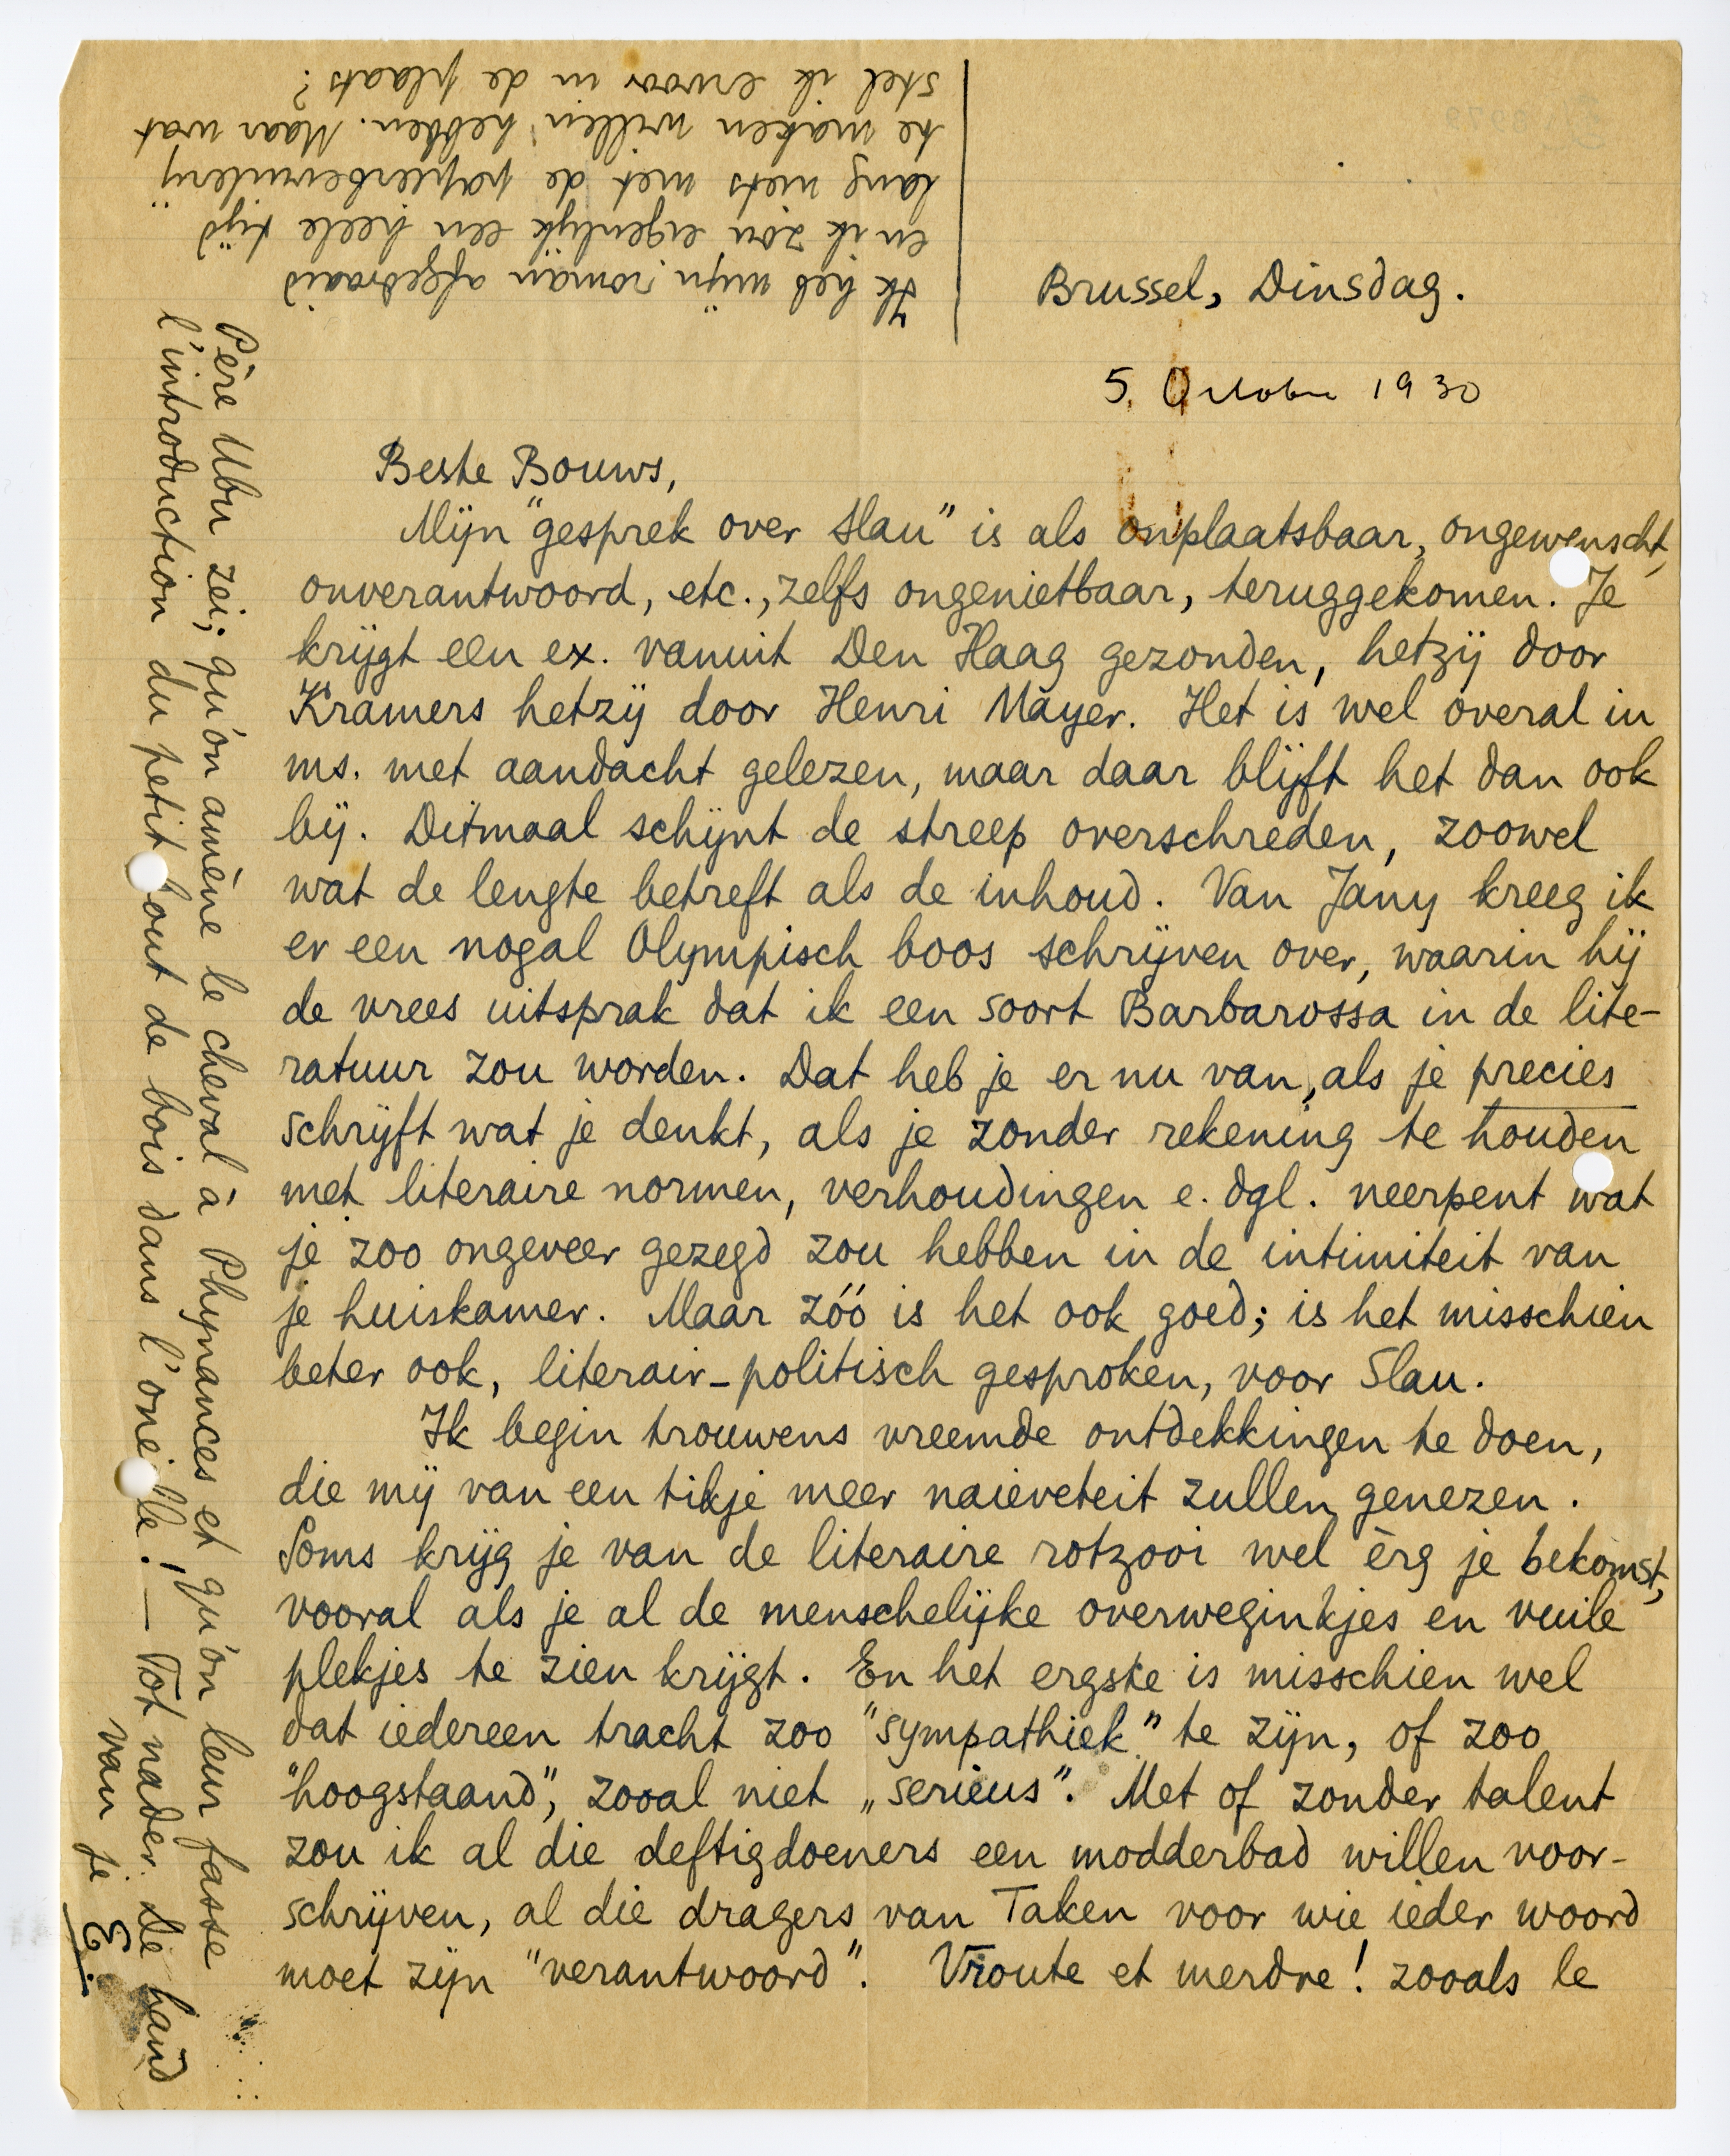 Brussel, Dinsdag.
5 October 1930
Beste Bouws,
Mijn "gesprek over Slau" is als onplaatsbaar, ongewenscht,
onverantwoord, etc., zelfs ongenietbaar, teruggekomen. Je
krijgt een ex. vanuit Den Haag gezonden, hetzij door
Kramers hetzij door Henri Mayer. Het is wel overal in
ms. met aandacht gelezen, maar daar blijft het dan ook
bij. Ditmaal schijnt de streep overschreden, zoowel
wat de lengte betreft als de inhoud. Van Jany kreeg ik
er een nogal Olympisch boos schrijven over, waarin hij
de vrees uitsprak dat ik een soort Barbarossa in de lite-
ratuur zou worden. Dat heb je er nu van, als je precies
schrijft wat je denkt, als je zonder rekening te houden
met literaire normen, verhoudingen e. dgl. neerpent wat
je zoo ongeveer gezegd zou hebben in de intimiteit van
je huiskamer. Maar zóó is het ook goed; is het misschien
beter ook, literair-politisch gesproken, voor Slau.
Ik begin trouwens vreemde ontdekkingen te doen,
die mij van een tikje meer naieveteit zullen genezen.
Soms krijg je van de literaire rotzooi wel èrg je bekomst,
vooral als je al de menschelijke overweginkjes en vuile
plekjes te zien krijgt. En het ergste is misschien wel
dat iedereen tracht zoo "sympathiek" te zijn, of zoo
"hoogstaand", zooal niet "serieus". Met of zonder talent
zou ik al die deftigdoeners een modderbad willen voor-
schrijven, al die dragers van Taken voor wie ieder woord
moet zijn "verantwoord". Vroute et merdre! zooals le
Père Ubu zei; qu'on amène le cheval à Phynances et qu'on leur fasse
l'introduction du petit bout de bois dans l'oneille! — Tot nader. De hand
van je E.
Ik heb mijn roman afgedraaid
en ik zou eigenlijk een heele tijd
lang niets met de papierbevuilerij
te maken willen hebben. Maar wat
stel ik ervoor in de plaats?